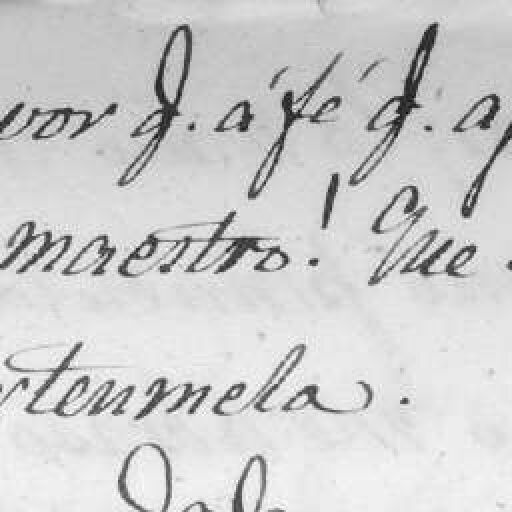 vor q. á fé q. a
maestro! Que
tenmela.